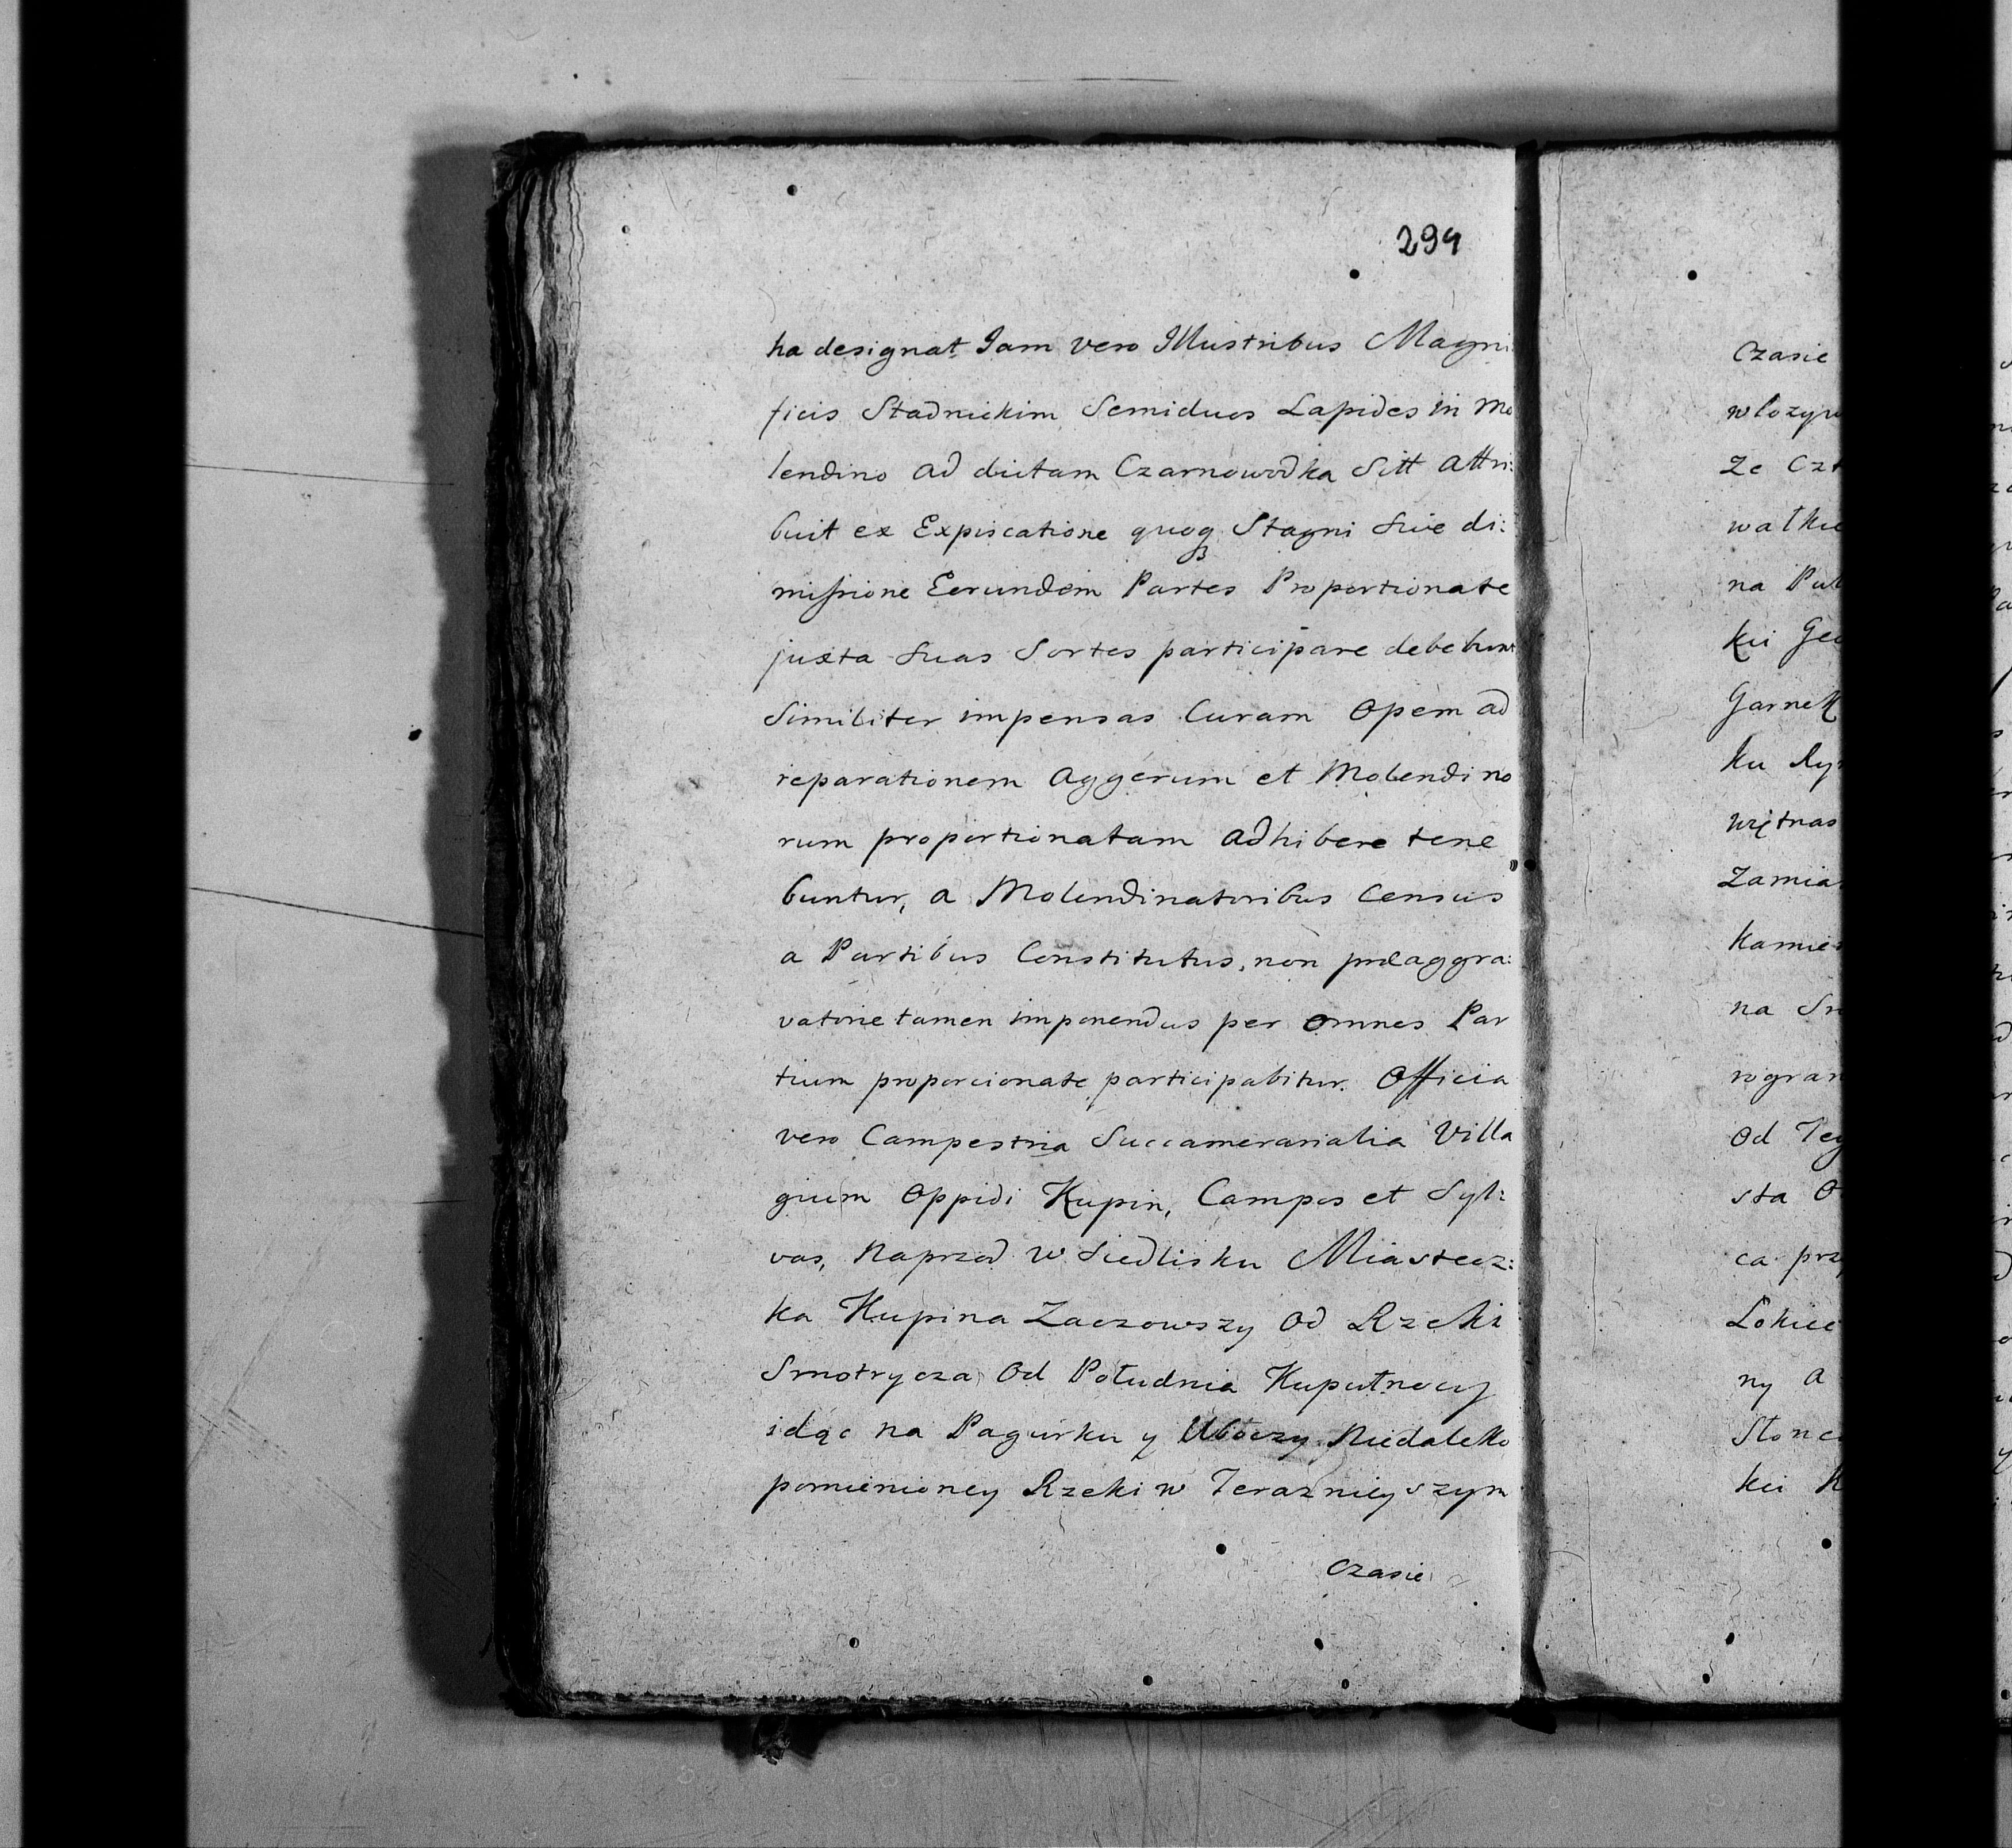 294
ha designat Jam vero Illustribus Magni:
ficis Stadnickim Semiduos Lapides in Mo
lendino ad dictam Czarnowodka Sitt Attri:
buit ex Expiscatione quoq Stagni Sive di:
missione Eerundem Partes Proportionate
juxta Suas Sortes participare debebunt
Similiter impensas Curam Opem ad
reparationem Aggerum et Molendino
rum proportionatam adhibere tene
buntur, a Molendinatoribus Census
a Partibus Constitutus, non præaggra:
vatorie tamen imponendus per omnes Par
tium proporcionate participabitur. Officia
vero Campestria Succamerarialia Villa
gium Oppidi Kupin, Campos et Syl:
vas, Naprzod w Siedlisku Miastecz:
ka Kupina Zaczowszy Od Rzeki
Smotrycza Od Południa Kupułnocy
idąc na Pagurku y Niedaleko
pomienioney Rzeki w Terazniejszym
Czasie
Czasie
na
Od
sta
ca
ny a